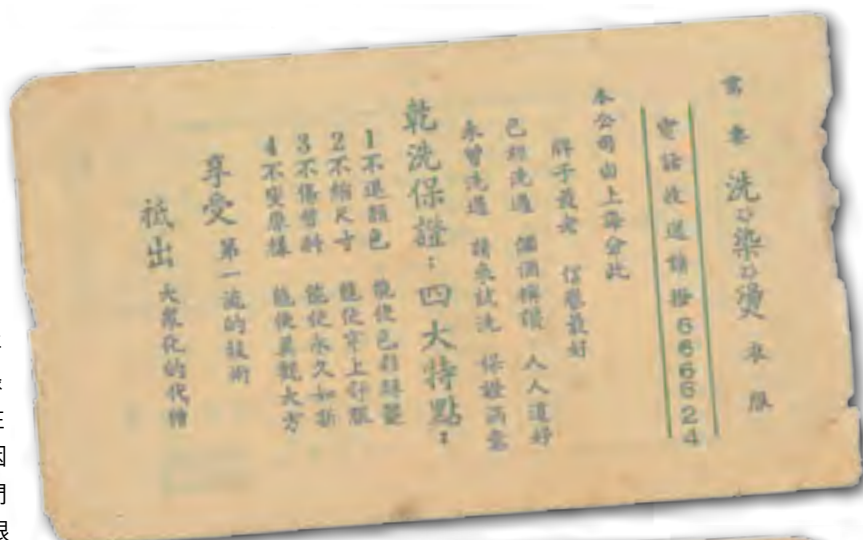 需要 洗 染 燙 衣服
電話收送請撥666624
本公司由上海分此
牌子最老 信譽最好
已經洗過 個個稱讚 人人道好
未曾洗過 請來試洗 保證滿意
乾洗保證：四大特點：
1不退顏色 能使色彩鮮艷
2不縮尺寸 能使穿上舒服
3不傷質料 能使永久如新
4不變原樣 能使美觀大方
享受 第一流的技術
祗出 大眾化的代價